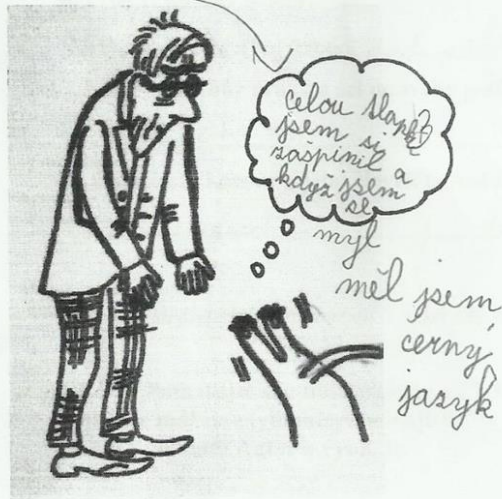 celou tlapk
jsem si
zašpinil a
když jsem
se
myl
měl jsem
černý
jazyk